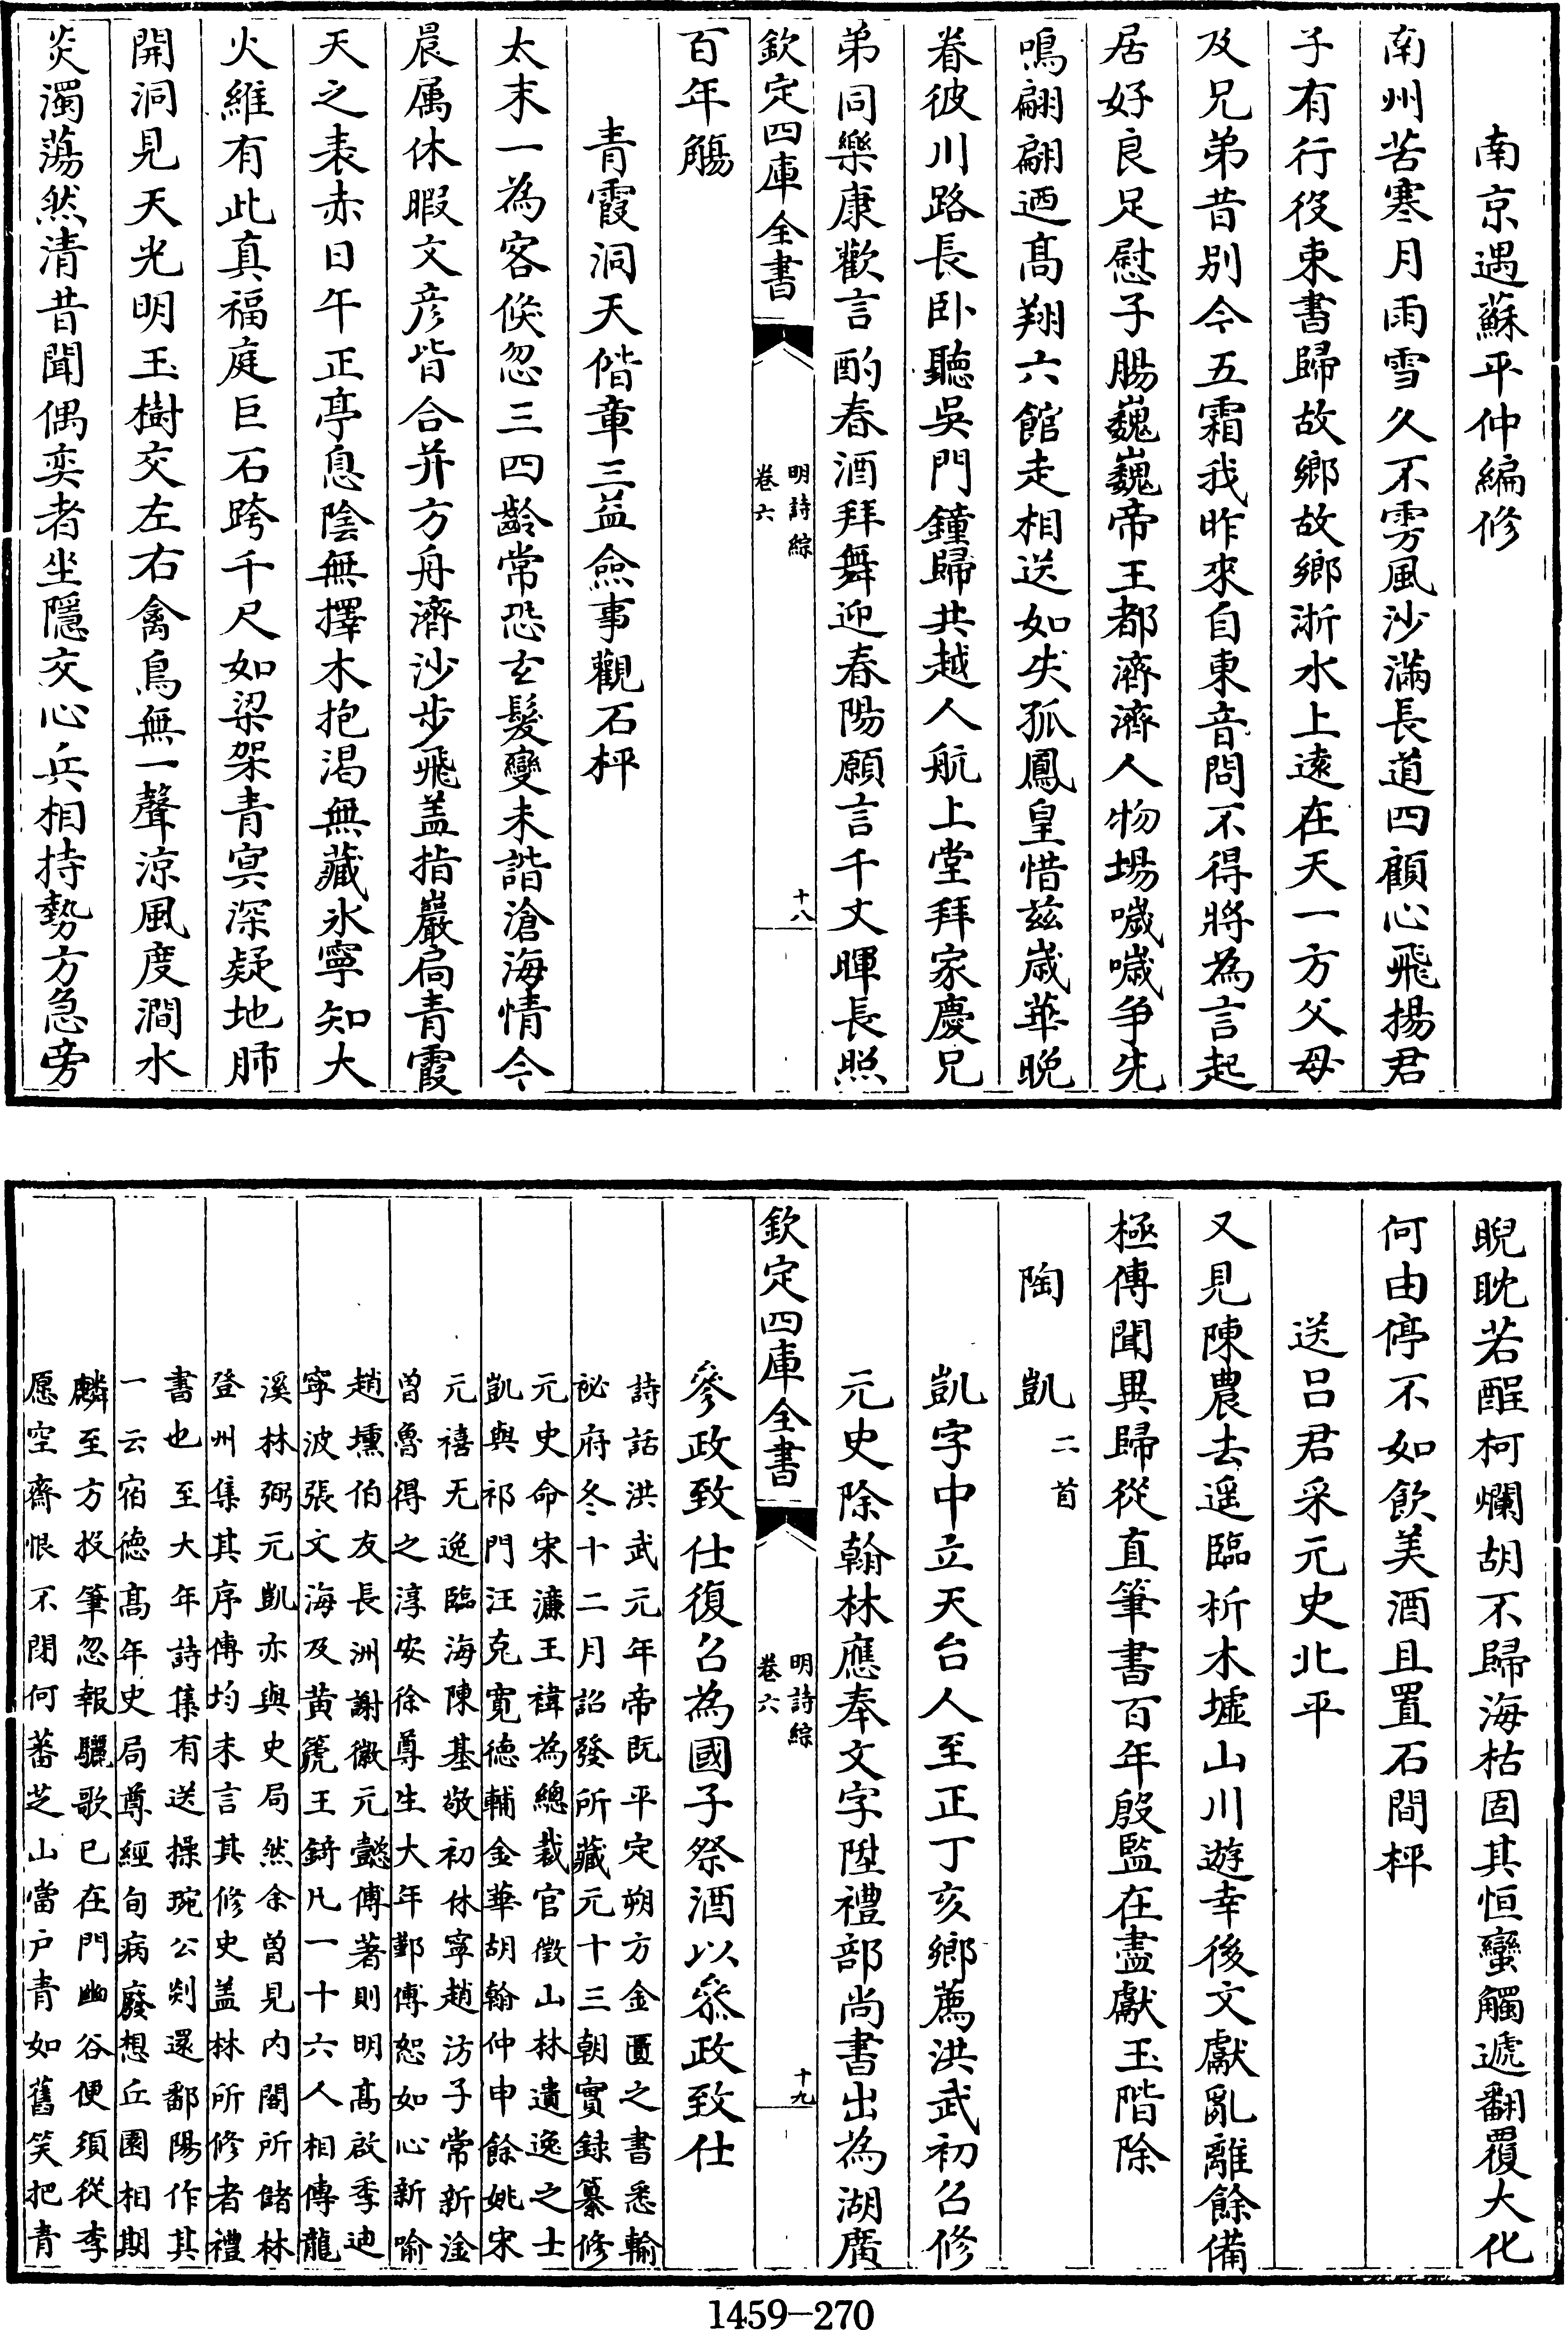 南京遇蘇平仲編修
南州苦寒月雨雪久不雱風沙滿長道四顧心飛揚君
子有行役束書歸故鄉故鄉浙水上遠在天一方父母
及兄弟昔別今五霜我昨來自東音問不得將為言起
居好良足慰子腸巍巍帝王都濟濟人物場噦噦爭先
鳴翩翩迺髙翔六館走相送如失孤鳳皇惜兹歲華晚
眷彼川路長卧聽吳門鐘歸共越人航上堂拜家慶兄
弟同樂康歡言酌春酒拜舞迎春陽願言千丈暉長照
欽定四庫全書
明詩綜
卷六
十八
百年觴
青霞洞天偕章三益僉事觀石枰
太末一為客倐忽三四齡常恐𤣥髮變未諧滄海情今
晨属休暇文彦皆合并方舟濟沙步飛盖指巖扃青霞
天之表赤日午正亭息陰無擇木抱渴無藏氷寧知大
火維有此真福庭巨石跨千尺如梁架青冥深疑地肺
開洞見天光明玉樹交左右禽鳥無一聲涼風度澗水
炎濁蕩然清昔聞偶奕者坐隱交心兵相持勢方急旁
睨眈若酲柯爛胡不歸海枯固其恒蠻觸遞翻覆大化
何由停不如飲美酒且置石間枰
送吕君采元史北平
又見陳農去遥臨析木墟山川遊幸後文獻亂離餘備
極傳聞異歸從直筆書百年殷監在盡獻玉階除
陶凱二首
凱字中立天台人至正丁亥鄉薦洪武初召修
元史除翰林應奉文字陞禮部尚書出為湖廣
欽定四庫全書
明詩綜
卷六
十九
參政致仕復召為國子祭酒以叅政致仕
詩話洪武元年帝既平定朔方金匱之書悉輸
秘府冬十二月詔發所藏元十三朝實録纂修
元史命宋濂王禕為總裁官徴山林遺逸之士
凱與祁門汪克寛德輔金華胡翰仲申餘姚宋
元禧无逸臨海陳基敬初休寧趙汸子常新淦
曾魯得之淳安徐尊生大年鄞傅恕如心新喻
趙壎伯友長洲謝徽元懿傅著則明髙啟季迪
寧波張文海及黄箎王錡凡一十六人相傳龍
溪林弼元凱亦與史局然余曽見内閣所儲林
登州集其序傳均未言其修史盖林所修者禮
書也至大年詩集有送操琬公剡還鄱陽作其
一云宿徳髙年史局尊經旬病廢想丘園相期
麟至方投筆忽報驪歌已在門幽谷便須從李
愿空齋恨不閉何蕃芝山當户青如舊笑把青
1459—270